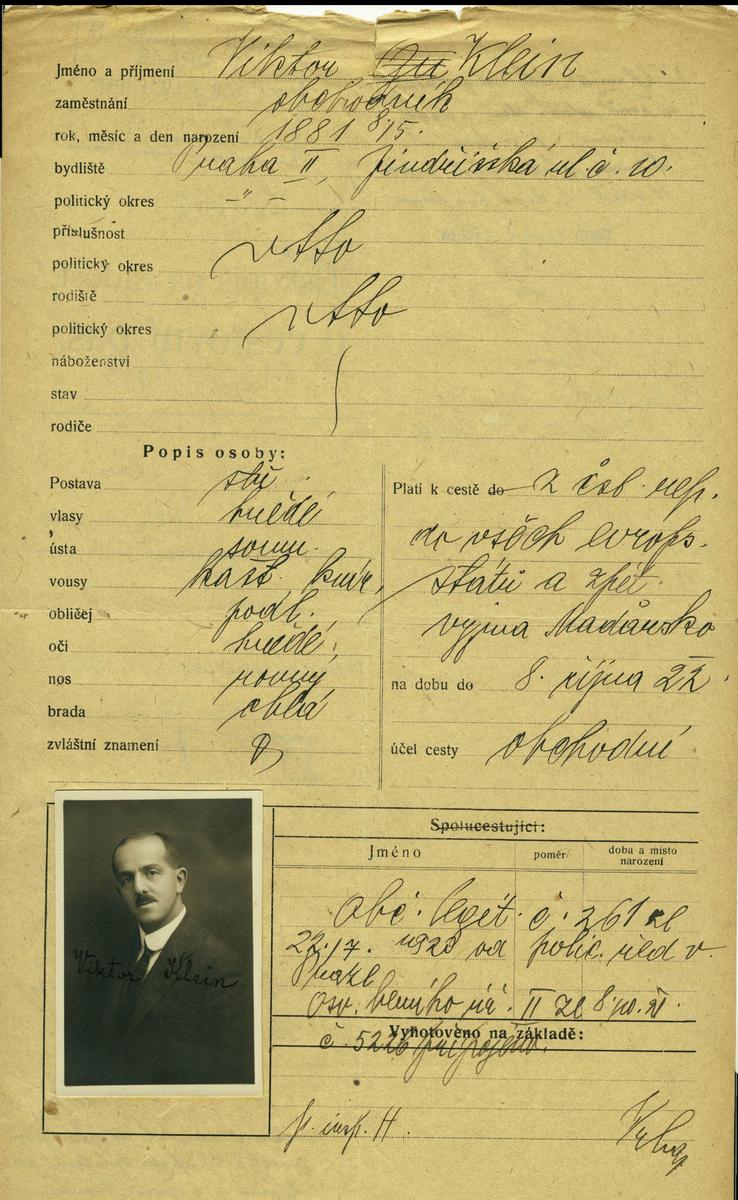 Jméno a příjmení Viktor Klein
zaměstnání obchodník
rok, měsíc a den narození 1881 8/5.
bydliště Praha II, Jindřišská ul. č. 10.
politický okres –"–
příslušnost
politický okres detto
rodiště
politický okres detto
náboženství
stav
rodiče
Popis osoby:
Postava stř.
vlasy hnědé
ústa soum.
vousy kašt. knír,
obličej podl.
oči hnědé,
nos rovný
brada oblá
zvláštní znamení
Platí k cestě do z čsl. rep.
do všech evrops.
států a zpět.
vyjma Maďarsko
na dobu do 8. října 22
účel cesty obchodní
Spolucestující:
Jméno poměr doba a místo narození
Obč. legit. č. 261 ze
22./7. 1920 od polic. řed v
Praze
Osv. berního úř. II ze 8./10. 21.
Vyhotoveno na základě:
č. 5226 připojeno.
p. insp. H.
Viktor Klein